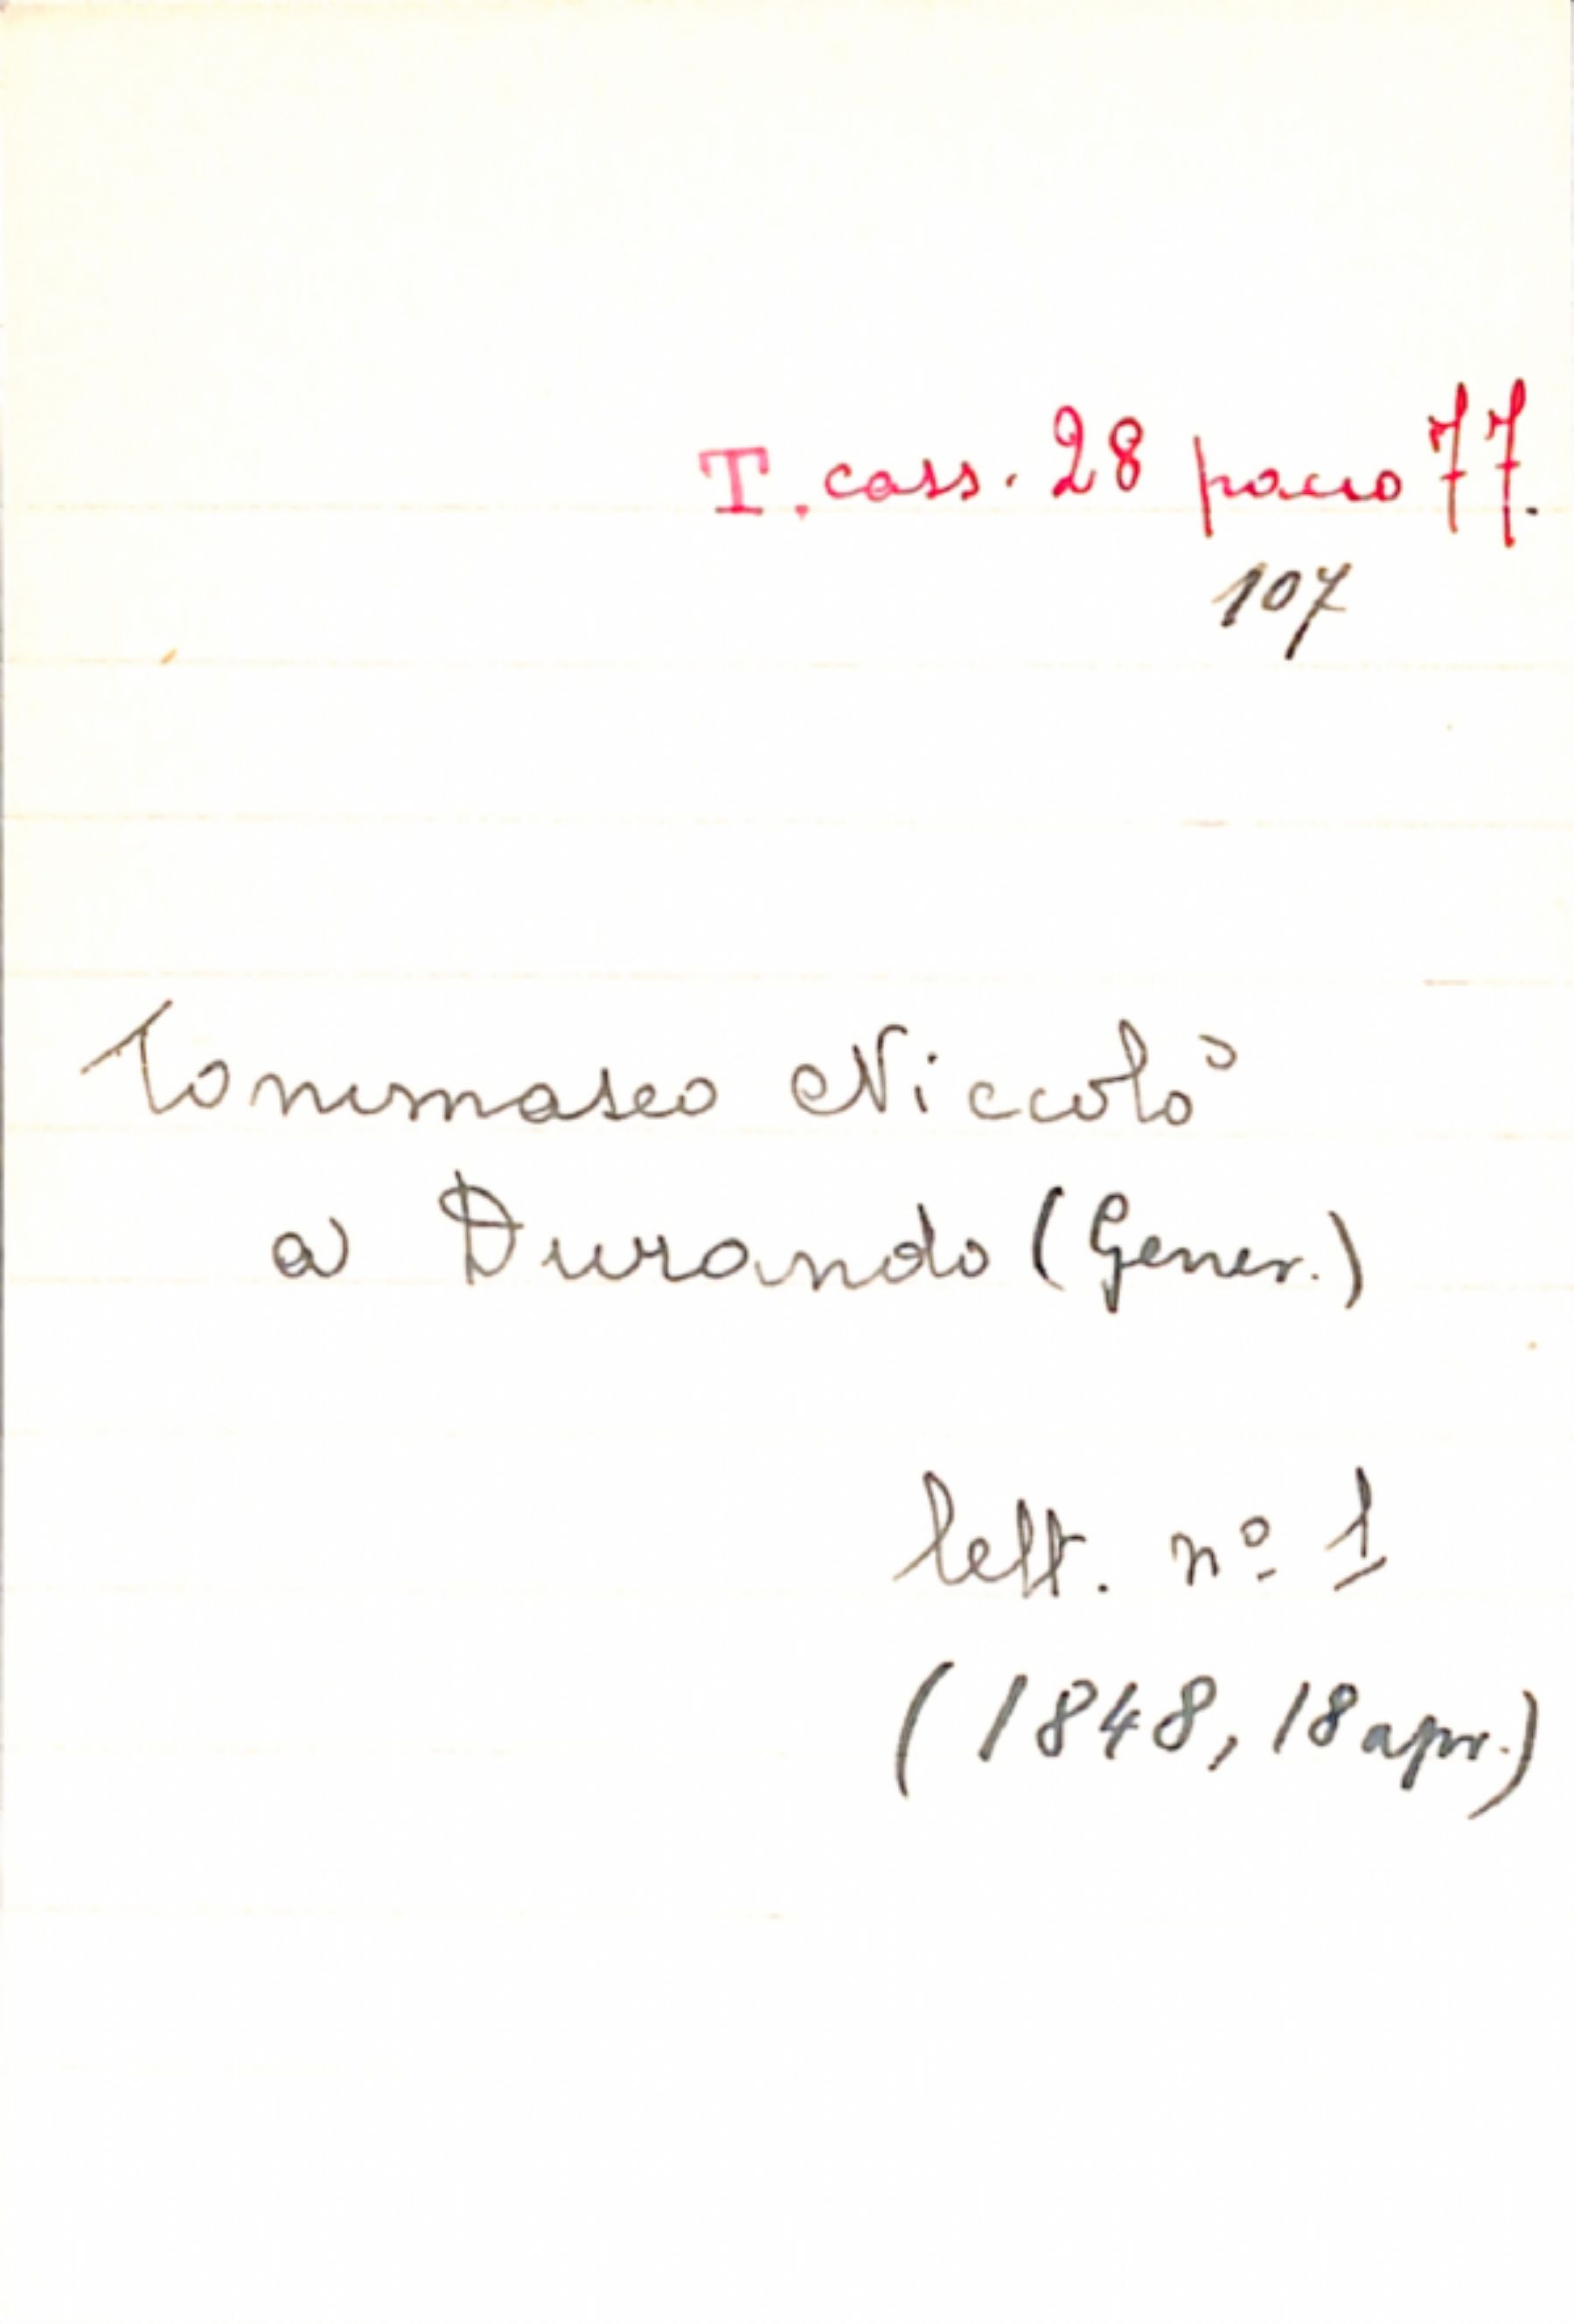 T. cass. 28 pacco 77.
107
Tommaseo Niccolò
a Durando (Gener.)
lett. nº 1
(1848, 18 apr.)